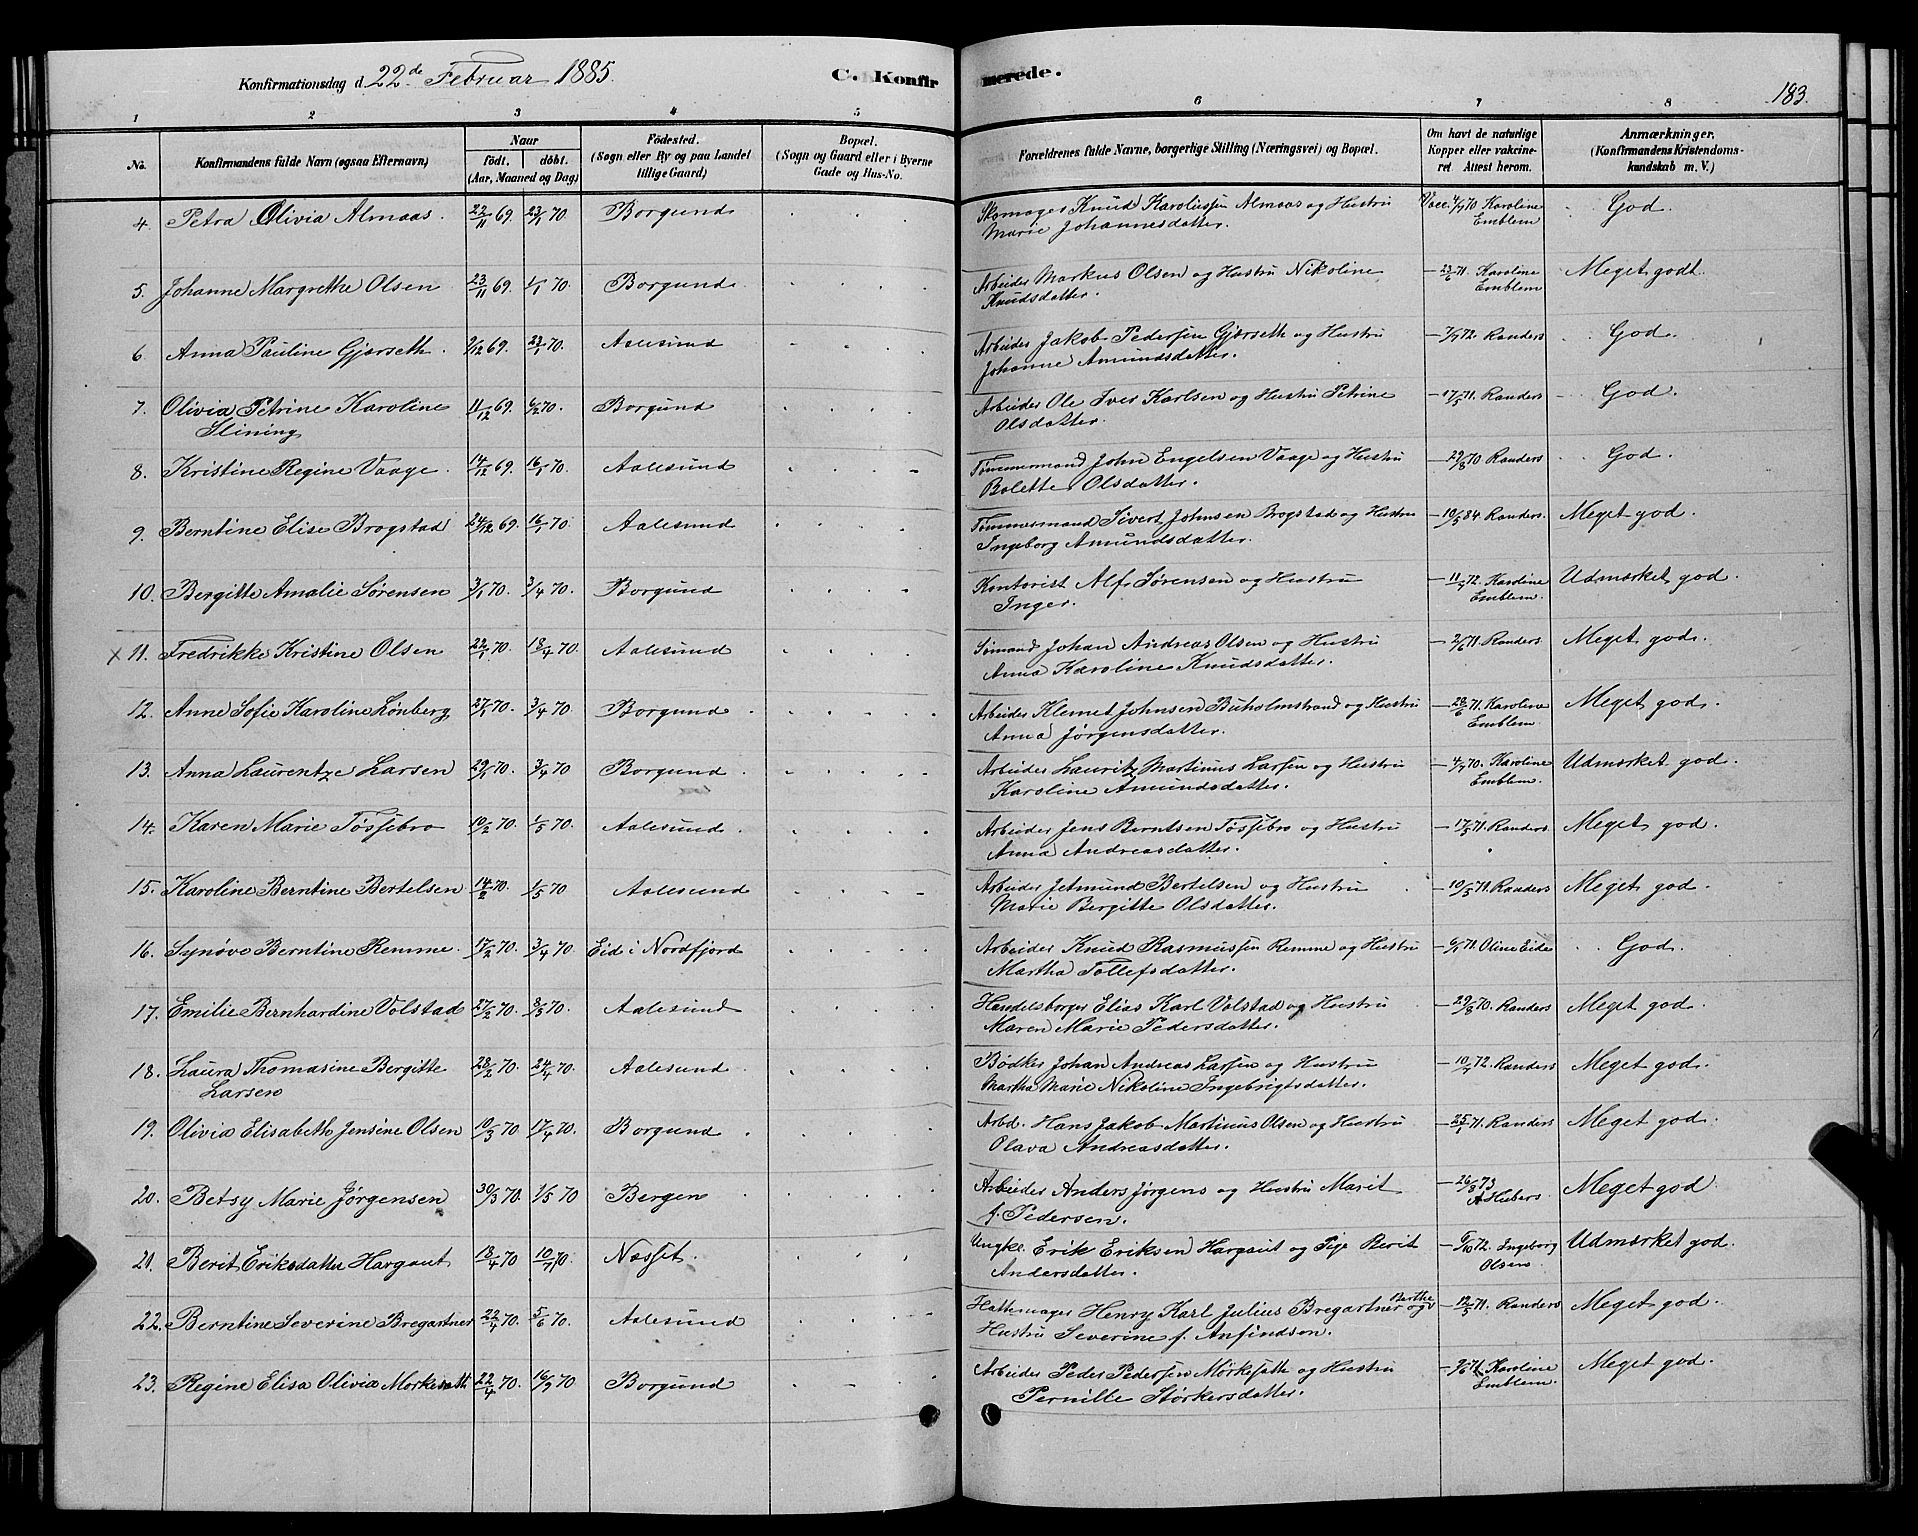 Konfirmationsdag d. 22de Februar 1885.
C. Konfirmerede.
183.
1 2 3 4 5 6 7 8
No. Konfirmandens fulde Navn (ogsaa Efternavn) Naar födt. döbt. (Aar, Maaned og Dag) Födested. (Sogn eller By og paa Landet tillige Gaard) Bopæl. (Sogn og Gaard eller i Byerne Gade og Hus-No. Forældrenes fulde Navne, borgerlige Stilling (Næringsvei) og Bopæl. Om havt de naturlige Kopper eller vakcineret Attest herom. Anmærkninger. (Konfirmandens Kristendomskundskab m. V.)
4. Petra Olivia Almaas. 22/11 69. 23/1 70. Borgund Skomager Knud Karolussen Almaas og Hustru Vacc. 4/7 70 Karoline God.
Marie Johannesdatter. Emblem
5. Johanne Margrethe Olsen 23/11 69. 1/1 70. Borgund. Arbeider Markus Olsen og Hustru Nikoline — 23/6 71. Karoline Meget godt.
Knudsdatter. Emblem
6. Anna Pauline Gjærseth. 9/12 69. 23/1 70. Aalesund Arbeider Jakob Pedersen Gjærseth og Hustru — 7/7 72. Randers God.
Johanne Amundsdatter.
7. Olivia Petrine Karoline 11/12 69. 6/2 70. Borgund Arbeider Ole Iver Karlsen og Hustru Petrine — 17/5 71. Randers God.
Slining Olsdatter.
8. Kristine Regine Vaage. 14/12 69. 16/1 70. Aalesund Tømmermand John Engelsen Vaage og Hustru — 29/8 70 Randers God.
Bolette Olsdatter.
9. Berntine Elise Brogstad 24/12 69. 16/1 70. Aalesund Tømmermand Sivert Johnsen Brogstad og Hustru — 10/5 84 Randers. Meget god.
Ingeborg Amundsdatter.
10. Bergitte Amalie Sørensen 3/1 70. 3/4 70. Borgund Kontorist Alf Sørensen og Hustru — 11/7 72. Karoline Udmærket god.
Inger. Emblem.
x 11. Fredrikke Kristine Olsen 22/1 70. 18/4 70. Aalesund Sømand Johan Andreas Olsen og Hustru — 2/6 71. Randers Meget god.
Anna Karoline Knudsdatter.
12. Anne Sofie Karoline Lønberg 27/1 70. 3/4 70 Borgund Arbeider Klemet Johnsen Buholmstrand og Hustru — 28/6 71. Karoline Meget god.
Anna Jørgensdatter. Emblem.
13. Anna Laurentze Larsen 29/1 70. 3/4 70 Borgund. Arbeider Lauritz Martinus Larsen og Hustru — 4/7 70. Karoline Udmærket god.
Karoline Amundsdatter. Emblem.
14. Karen Marie Tøssebro 10/2 70. 1/5 70. Aalesund. Arbeider Jens Berntsen Tøssebro og Hustru — 17/5 71. Randers. Meget god.
Anna Andreasdatter.
15. Karoline Berntine Bertelsen 14/2 70. 1/5 70 Aalesund Arbeider Jetmund Bertelsen og Hustru — 10/5 71. Randers Meget god.
Marie Bergitte Olsdatter.
16. Synøve Berntine Remme. 17/2 70. 3/4 70. Eid i Nordfjord Arbeider Knud Rasmussen Remme og Hustru — 6/1 71. Oline Eide God.
Martha Tollefsdatter.
17. Emilie Bernhardine Volstad 27/2 70. 8/5 70. Aalesund Handelsborger Elias Karl Volstad og Hustru — 29/8 70. Randers Meget god.
Maren Marie Pedersdatter.
18. Laura Thomasine Bergitte 28/2 70. 24/4 70. Aalesund. Bødker Johan Andreas Larsen og Hustru — 10/7 72. Randers Meget god.
Larsen Martha Marie Nikoline Ingebrigtsdatter.
19. Olivia Elisabeth Jensine Olsen 10/3 70. 17/4 70. Borgund. Arbd. Hans Jakob Martinus Olsen og Hustru — 25/1 71. Randers Meget god.
Olava Andreasdatter.
20. Betsy Marie Jørgensen 30/3 70. 1/5 70 Bergen Arbeider Anders Jørgens og Hustru Marit — 26/8 73 Meget god
f. Pedersen.
21. Berit Eriksdatter Hargaut 18/4 70 10/7 70. Næsset. Ungkl. Erik Eriksen Hargaut og Pige Berit — 6/10 72. Ingeborg Udmærket god.
Andersdatter. Olsen.
22. Berntine Severine Bregartner 22/4 70. 5/6 70. Aalesund Hattemager Henry Karl Julius Bregartner og Berthe — 12/5 71. Randers Meget god.
Hustru Severine f. Anfindsen.
23. Regine Elisa Olivia Morkeseth 22/4 70. 16/9 70 Borgund Arbeider Peder Pedersen Mörkeseth og Hustru — 9/6 71. Karoline Meget god.
Pernille Størkersdatter. Emblem.